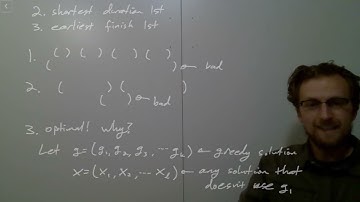 2. shortest duration 1st
3. earliest finish 1st
1. ( ) ( ) ( ) ( )
( ) ← bad
2. ( ) ( )
( ) ← bad
3. optimal! why?
Let g = (g1, g2, g3, ... gk) ← greedy solution
x = (x1, x2, ... xl) ← any solution that
doesn't use g1